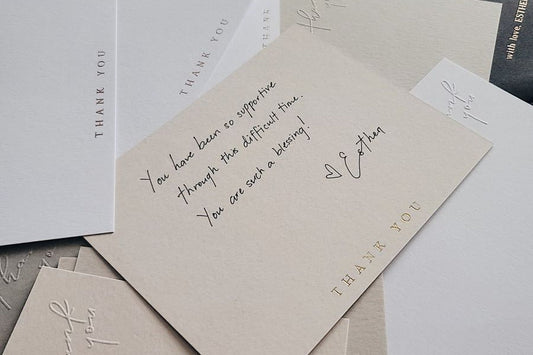 THANK YOU
THANK YOU
thank
you
with love, ESTHER
You have been so supportive
through this difficult time.
You are such a blessing!
♡ Esther
THANK YOU
thank
you
thank
you
thank
you